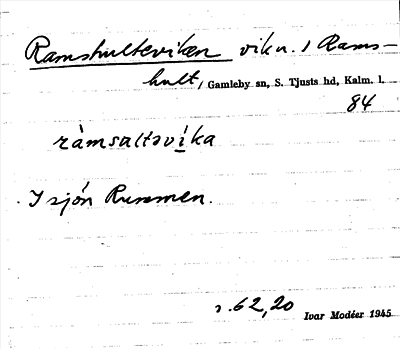 Ramshulteviken vik n. / Rams-
hult, Gamleby sn, S. Tjusts hd, Kalm. l.
84
ràmsaltəvíka
I sjón Rummen.
s. 62, 20 Ivar Modéer 1945